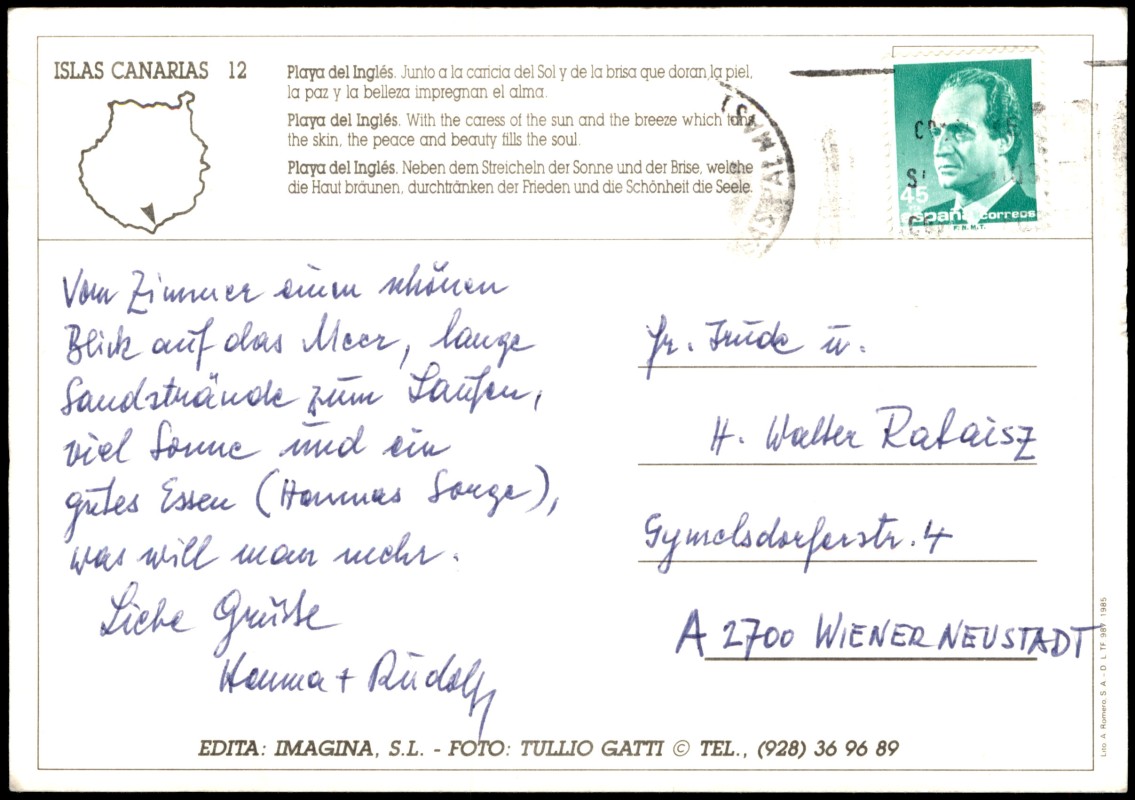 ISLAS CANARIAS 12
Playa del Inglés. Junto a la caricia del Sol y de la brisa que doran la piel,
la paz y la belleza impregnan el alma.
Playa del Inglés. With the caress of the sun and the breeze which tans
the skin, the peace and beauty fills the soul.
Playa del Inglés. Neben dem Streicheln der Sonne und der Brise, welche
die Haut bräunen, durchtränken der Frieden und die Schönheit die Seele.
45
españa correos
F.N.M.T.
Vom Zimmer einen schönen
Blick auf das Meer, lange
Sandstrände zum Laufen,
viel Sonne und ein
gutes Essen (Hannas Sorge),
was will man mehr.
Liebe Grüsse
Hanna + Rudolf
Fr. Trude u.
H. Walter Rataisz
Gymelsdorferstr. 4
A 2700 WIENER NEUSTADT
EDITA: IMAGINA, S.L. - FOTO: TULLIO GATTI © TEL., (928) 36 96 89
Lito A. Romero, S. A. - D. L. TF. 987 1985